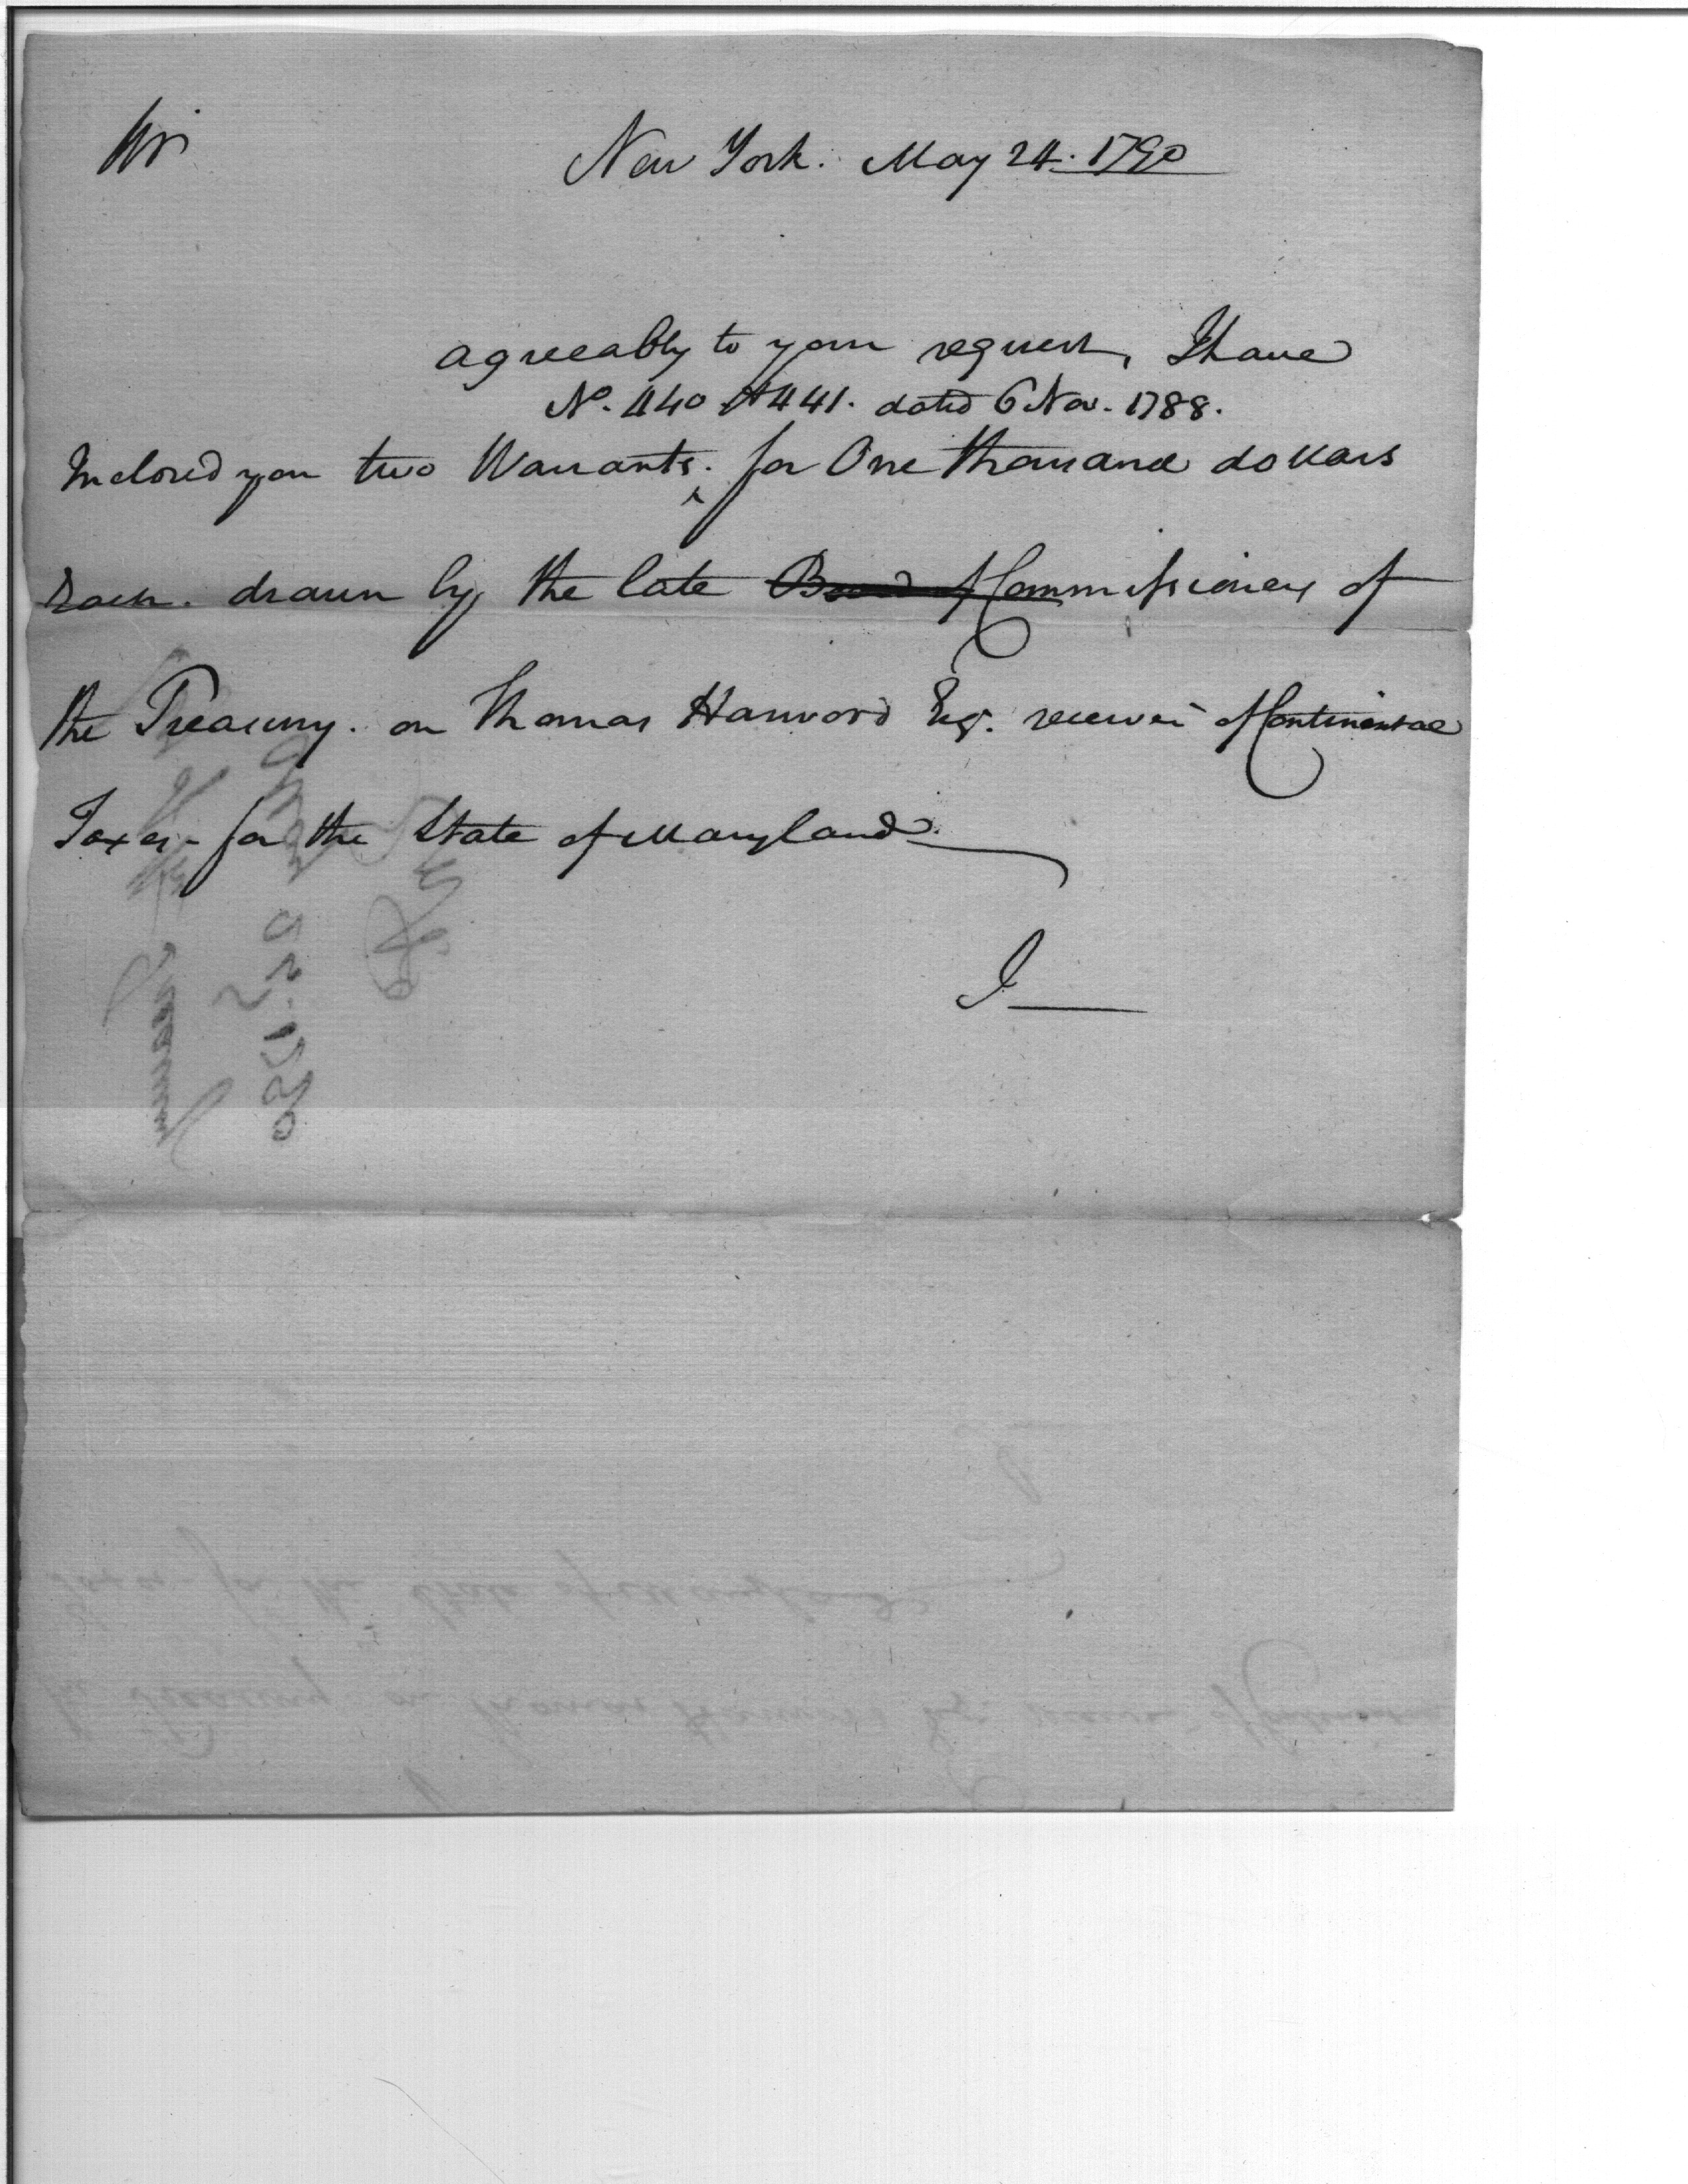 Sir
New York. May 24. 1790
agreeably to your request, I have
No. 440 & 441. dated 6 Nov. 1788.
Inclosed you two Warrants. for One thousand dollars
Each. drawn by the late Board of Commissioners of
the Treasury. on Thomas Harwood Esq. receiver of Continental
Taxes - for the State of Maryland.
I